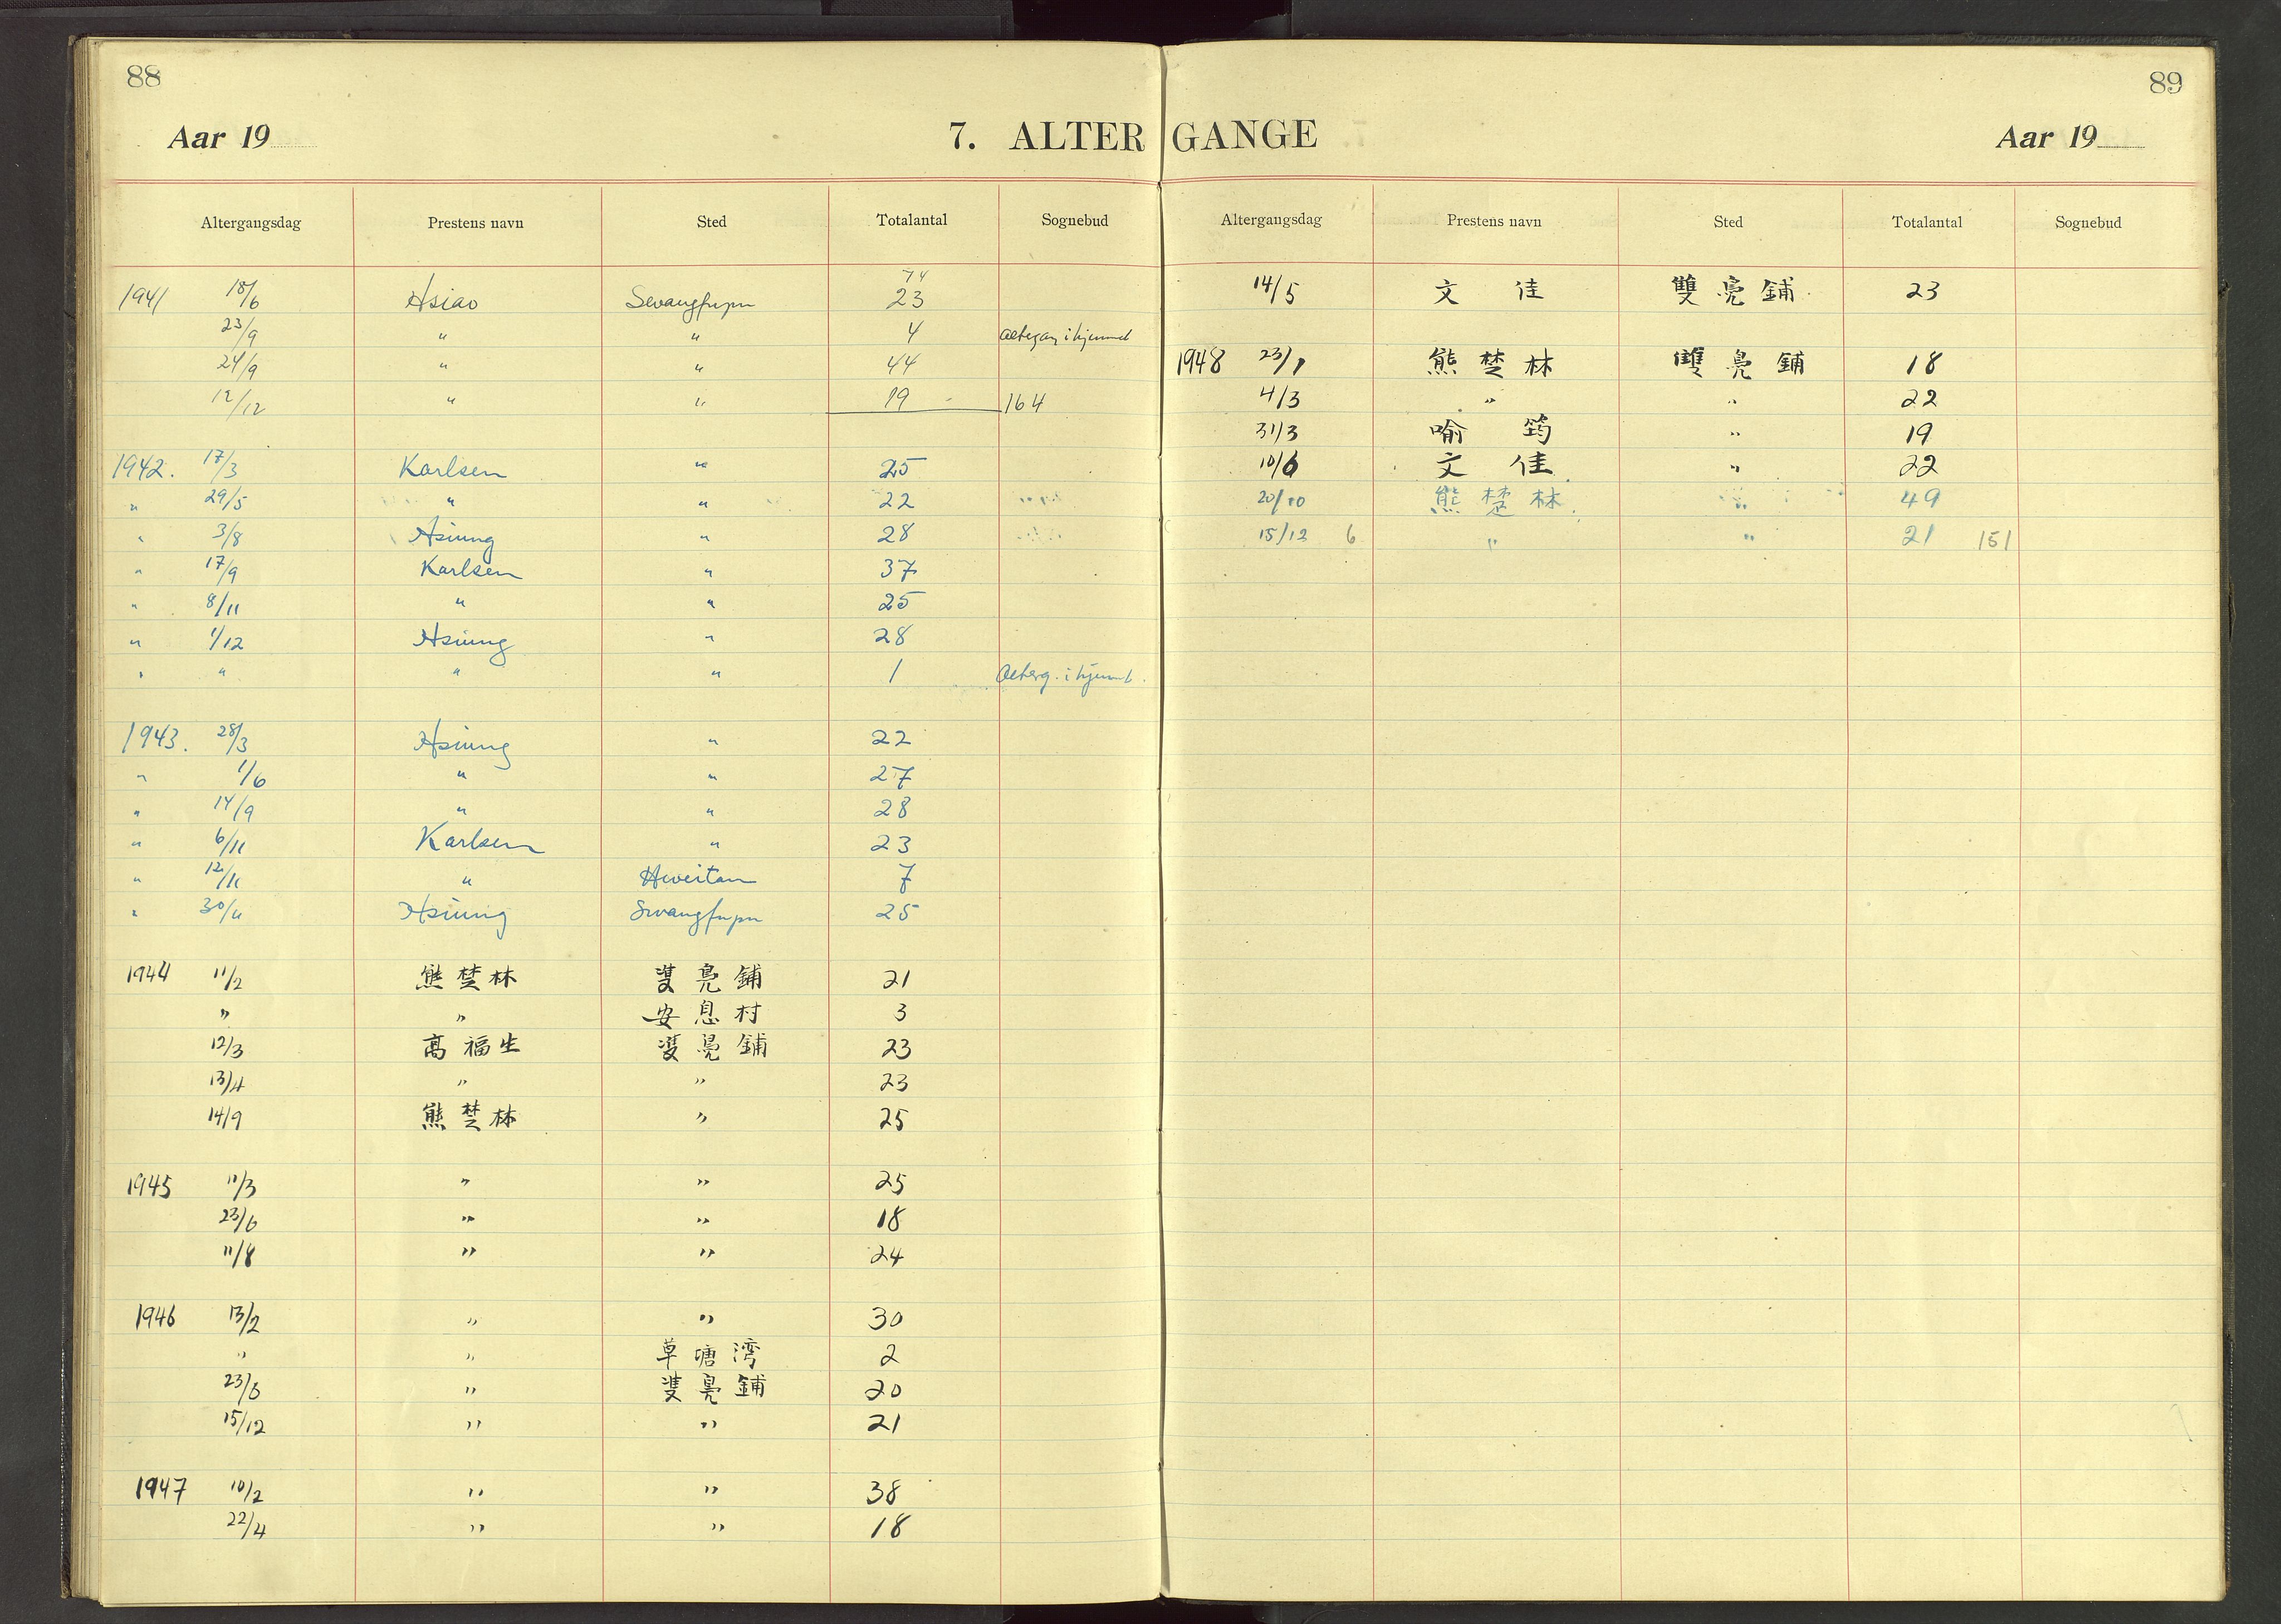 88
Aar 19
7. ALTER
Altergangsdag Prestens navn Sted Totalantal Sognebud
74
1941 18/6 Hsiao Swangfupu 23
23/9 " " 4 i hjemmet
24/9 " " 44
12/12 " " 19 - 164
1942. 17/3 Karlsen " 25
" 29/5 " " 22
" 3/8 Hsiung " 28
" 17/9 Karlsen " 37
" 8/11 " " 25
" 1/12 Hsiung " 28
" " " " 1 Alterg. i hjemmet.
1943. 28/3 Hsiung " 22
" 1/6 " " 27
" 14/9 " " 28
" 6/11 Karlsen " 23
" 12/11 " Hweitan 7
" 30/11 Hsiung Swangfupu 25
1944 11/2 熊楚林 雙鳧鋪 21
" " 安息村 3
12/3 高福生 雙鳧鋪 23
13/4 " " 23
14/9 熊楚林 " 25
1945 11/3 " " 25
23/6 " " 18
11/8 " " 24
1946 13/2 " " 30
" " 草塘湾 2
23/6 " 雙鳧鋪 20
15/12 " " 21
1947 10/2 " " 38
22/4 " " 18
89
GANGE
Aar 19
Altergangsdag Prestens navn Sted Totalantal Sognebud
14/5 文佳 雙鳧鋪 23
1948 23/1 熊楚林 雙鳧鋪 18
4/3 " " 22
31/3 喻筠 " 19
10/6 文佳 " 22
20/10 熊楚林 " 49
15/12 6 " " 21 151